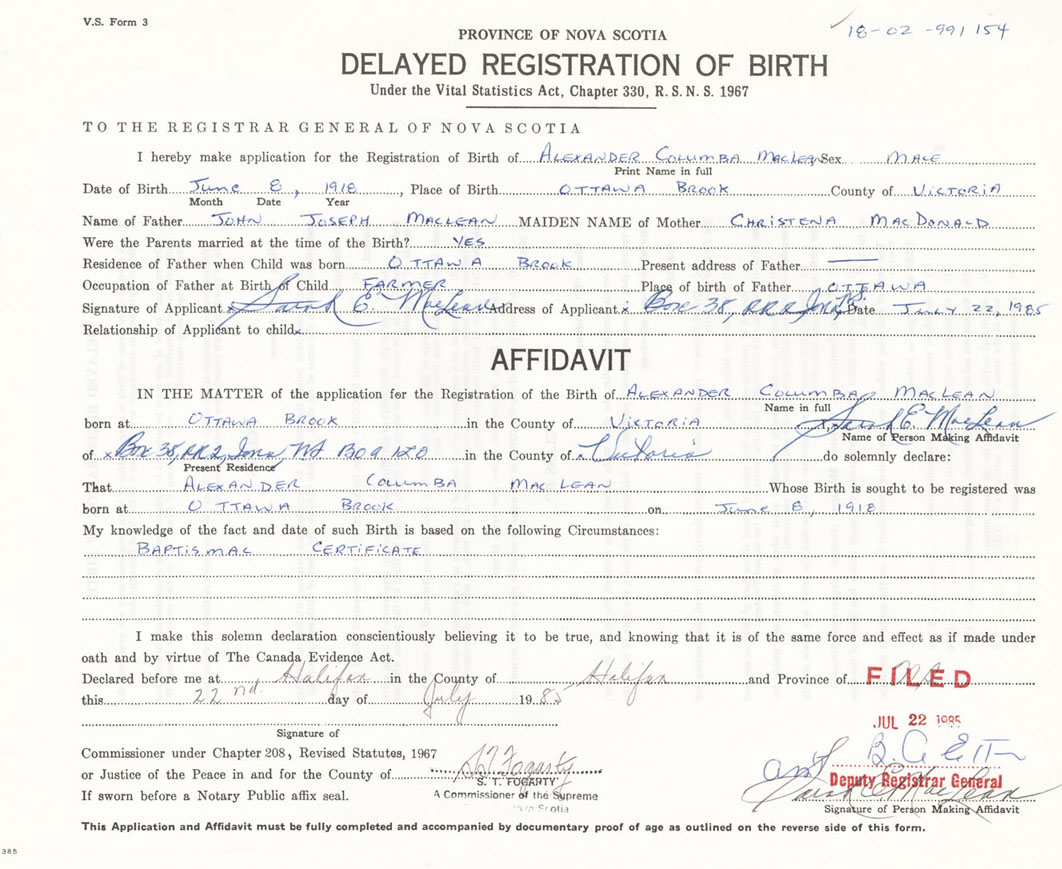 V.S. Form 3
18-02-991154
PROVINCE OF NOVA SCOTIA
DELAYED REGISTRATION OF BIRTH
Under the Vital Statistics Act, Chapter 330, R.S.N.S. 1967
TO THE REGISTRAR GENERAL OF NOVA SCOTIA
I hereby make application for the Registration of Birth of ALEXANDER COLUMBA MACLEAN Sex MALE
Print Name in full
Date of Birth June 8, 1918, Place of Birth OTTAWA BROOK County of VICTORIA
Month Date Year
Name of Father JOHN JOSEPH MACLEAN MAIDEN NAME of Mother CHRISTENA MACDONALD
Were the Parents married at the time of the Birth? YES
Residence of Father when Child was born OTTAWA BROOK Present address of Father —
Occupation of Father at Birth of Child FARMER Place of birth of Father OTTAWA
Signature of Applicant x Sarah E. MacLean Address of Applicant x Box 38, RR2 Iona Date July 22, 1985
Relationship of Applicant to child x
AFFIDAVIT
IN THE MATTER of the application for the Registration of the Birth of ALEXANDER COLUMBA MACLEAN
Name in full
born at OTTAWA BROOK in the County of VICTORIA x Sarah E. MacLean
Name of Person Making Affidavit
of x Box 38, RR2, Iona, NS. B0A 1L0 in the County of x Victoria do solemnly declare:
Present Residence
That ALEXANDER COLUMBA MACLEAN Whose Birth is sought to be registered was
born at OTTAWA BROOK on June 8, 1918
My knowledge of the fact and date of such Birth is based on the following Circumstances:
BAPTISMAL CERTIFICATE
I make this solemn declaration conscientiously believing it to be true, and knowing that it is of the same force and effect as if made under
oath and by virtue of The Canada Evidence Act.
Declared before me at Halifax in the County of Halifax and Province of FILED
this 22nd. day of July 1985
JUL 22 1985
Signature of
Commissioner under Chapter 208, Revised Statutes, 1967
or Justice of the Peace in and for the County of S T Fogarty
S. T. FOGARTY
Deputy Registrar General
If sworn before a Notary Public affix seal.
A Commissioner of the Supreme
Scotia
Sarah E. MacLean
Signature of Person Making Affidavit
This Application and Affidavit must be fully completed and accompanied by documentary proof of age as outlined on the reverse side of this form.
385